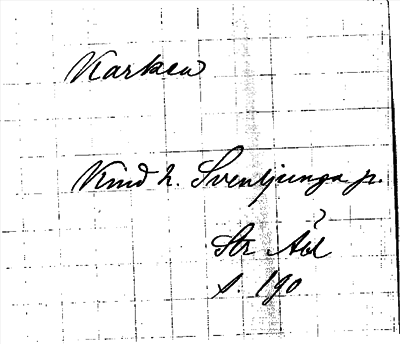 Karken
Kind h. Svenljunga p.
?
Str
s. 190